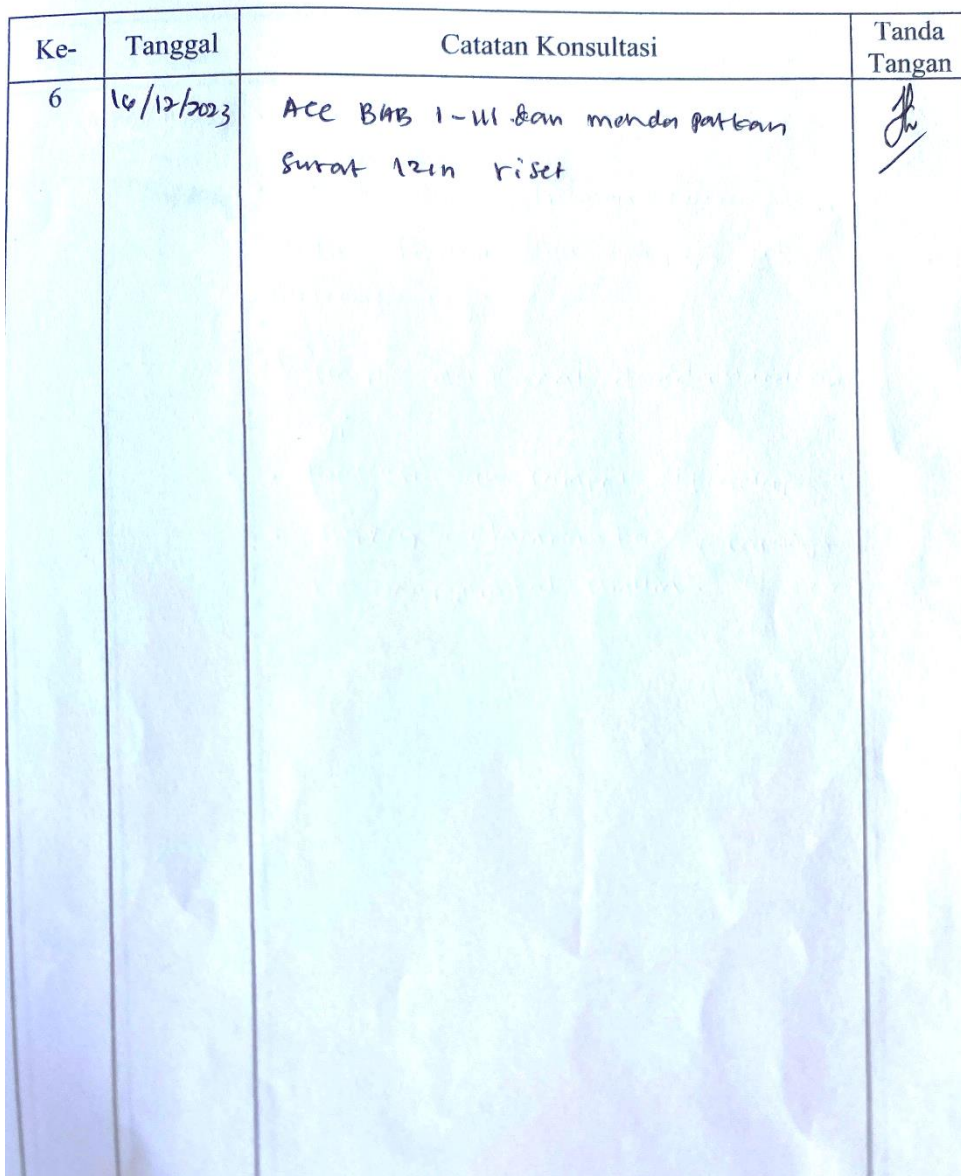 Ke- Tanggal Catatan Konsultasi Tanda
Tangan
6 16/12/2023 Acc BAB I-III dan mendapatkan
Surat izin riset